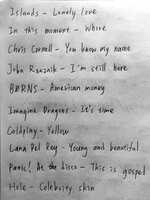 Islands - Lonely love
In this moment - Whore
Chris Cornell - You know my name
John Rzeznik - I'm still here
BØRNS - American money
Imagine Dragons - It's time
Coldplay - Yellow
Lana Del Rey - Young and beautiful
Panic! At the disco - This is gospel
Hole - Celebrity skin